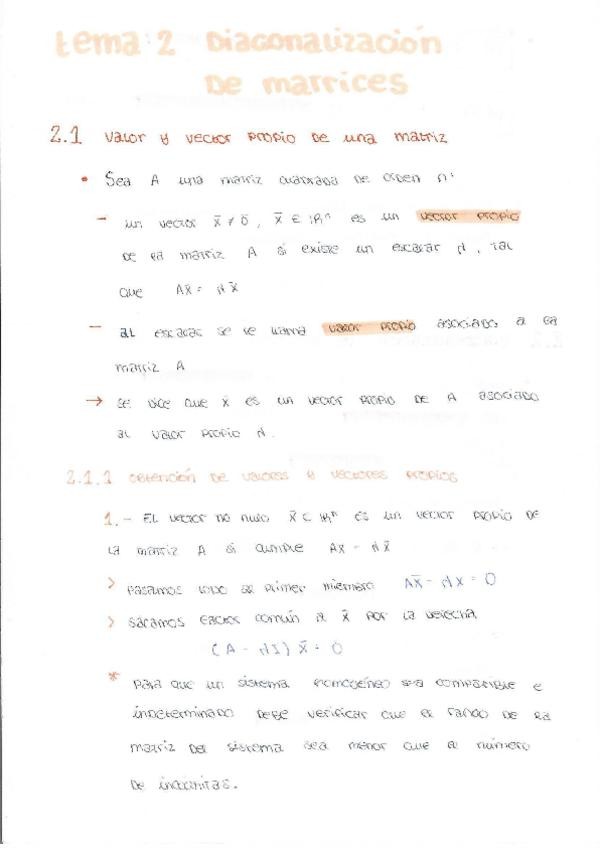 tema 2 Diagonalización
De matrices
2.1 Valor y vector propio de una matriz
• Sea A una matriz cuadrada de orden n:
- un vector x̄ ≠ ō, x̄ ∈ ℝⁿ es un vector propio
de la matriz A si existe un escalar λ, tal
que Ax̄ = λx̄
- al escalar se le llama valor propio asociado a la
matriz A
→ se dice que x̄ es un vector propio de A asociado
al valor propio λ.
2.1.1 obtención de valores y vectores propios
1.- El vector no nulo x̄ ∈ ℝⁿ es un vector propio de
la matriz A si cumple Ax = λx̄
> pasamos todo al primer miembro Ax̄ - λx = 0
> sacamos factor común a x̄ por la derecha
(A - λI) x̄ = 0
* para que un sistema homogéneo sea compatible e
indeterminado debe verificar que el rango de la
matriz del sistema sea menor que el número
de incógnitas.